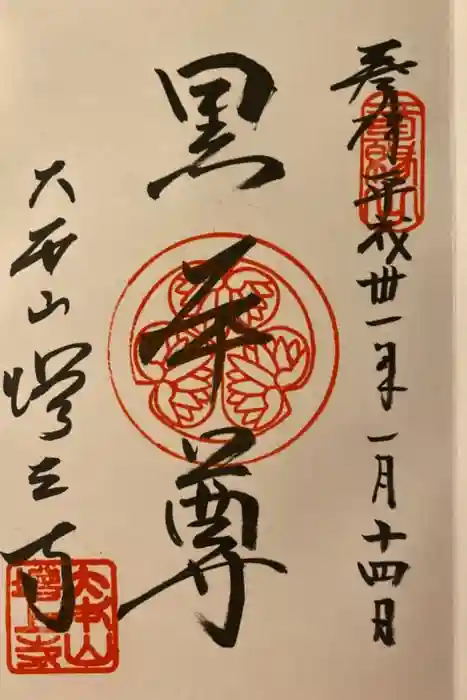 奉拝 平成卅一年一月十四日
黒本尊
大本山 増上寺
大本山
増上寺